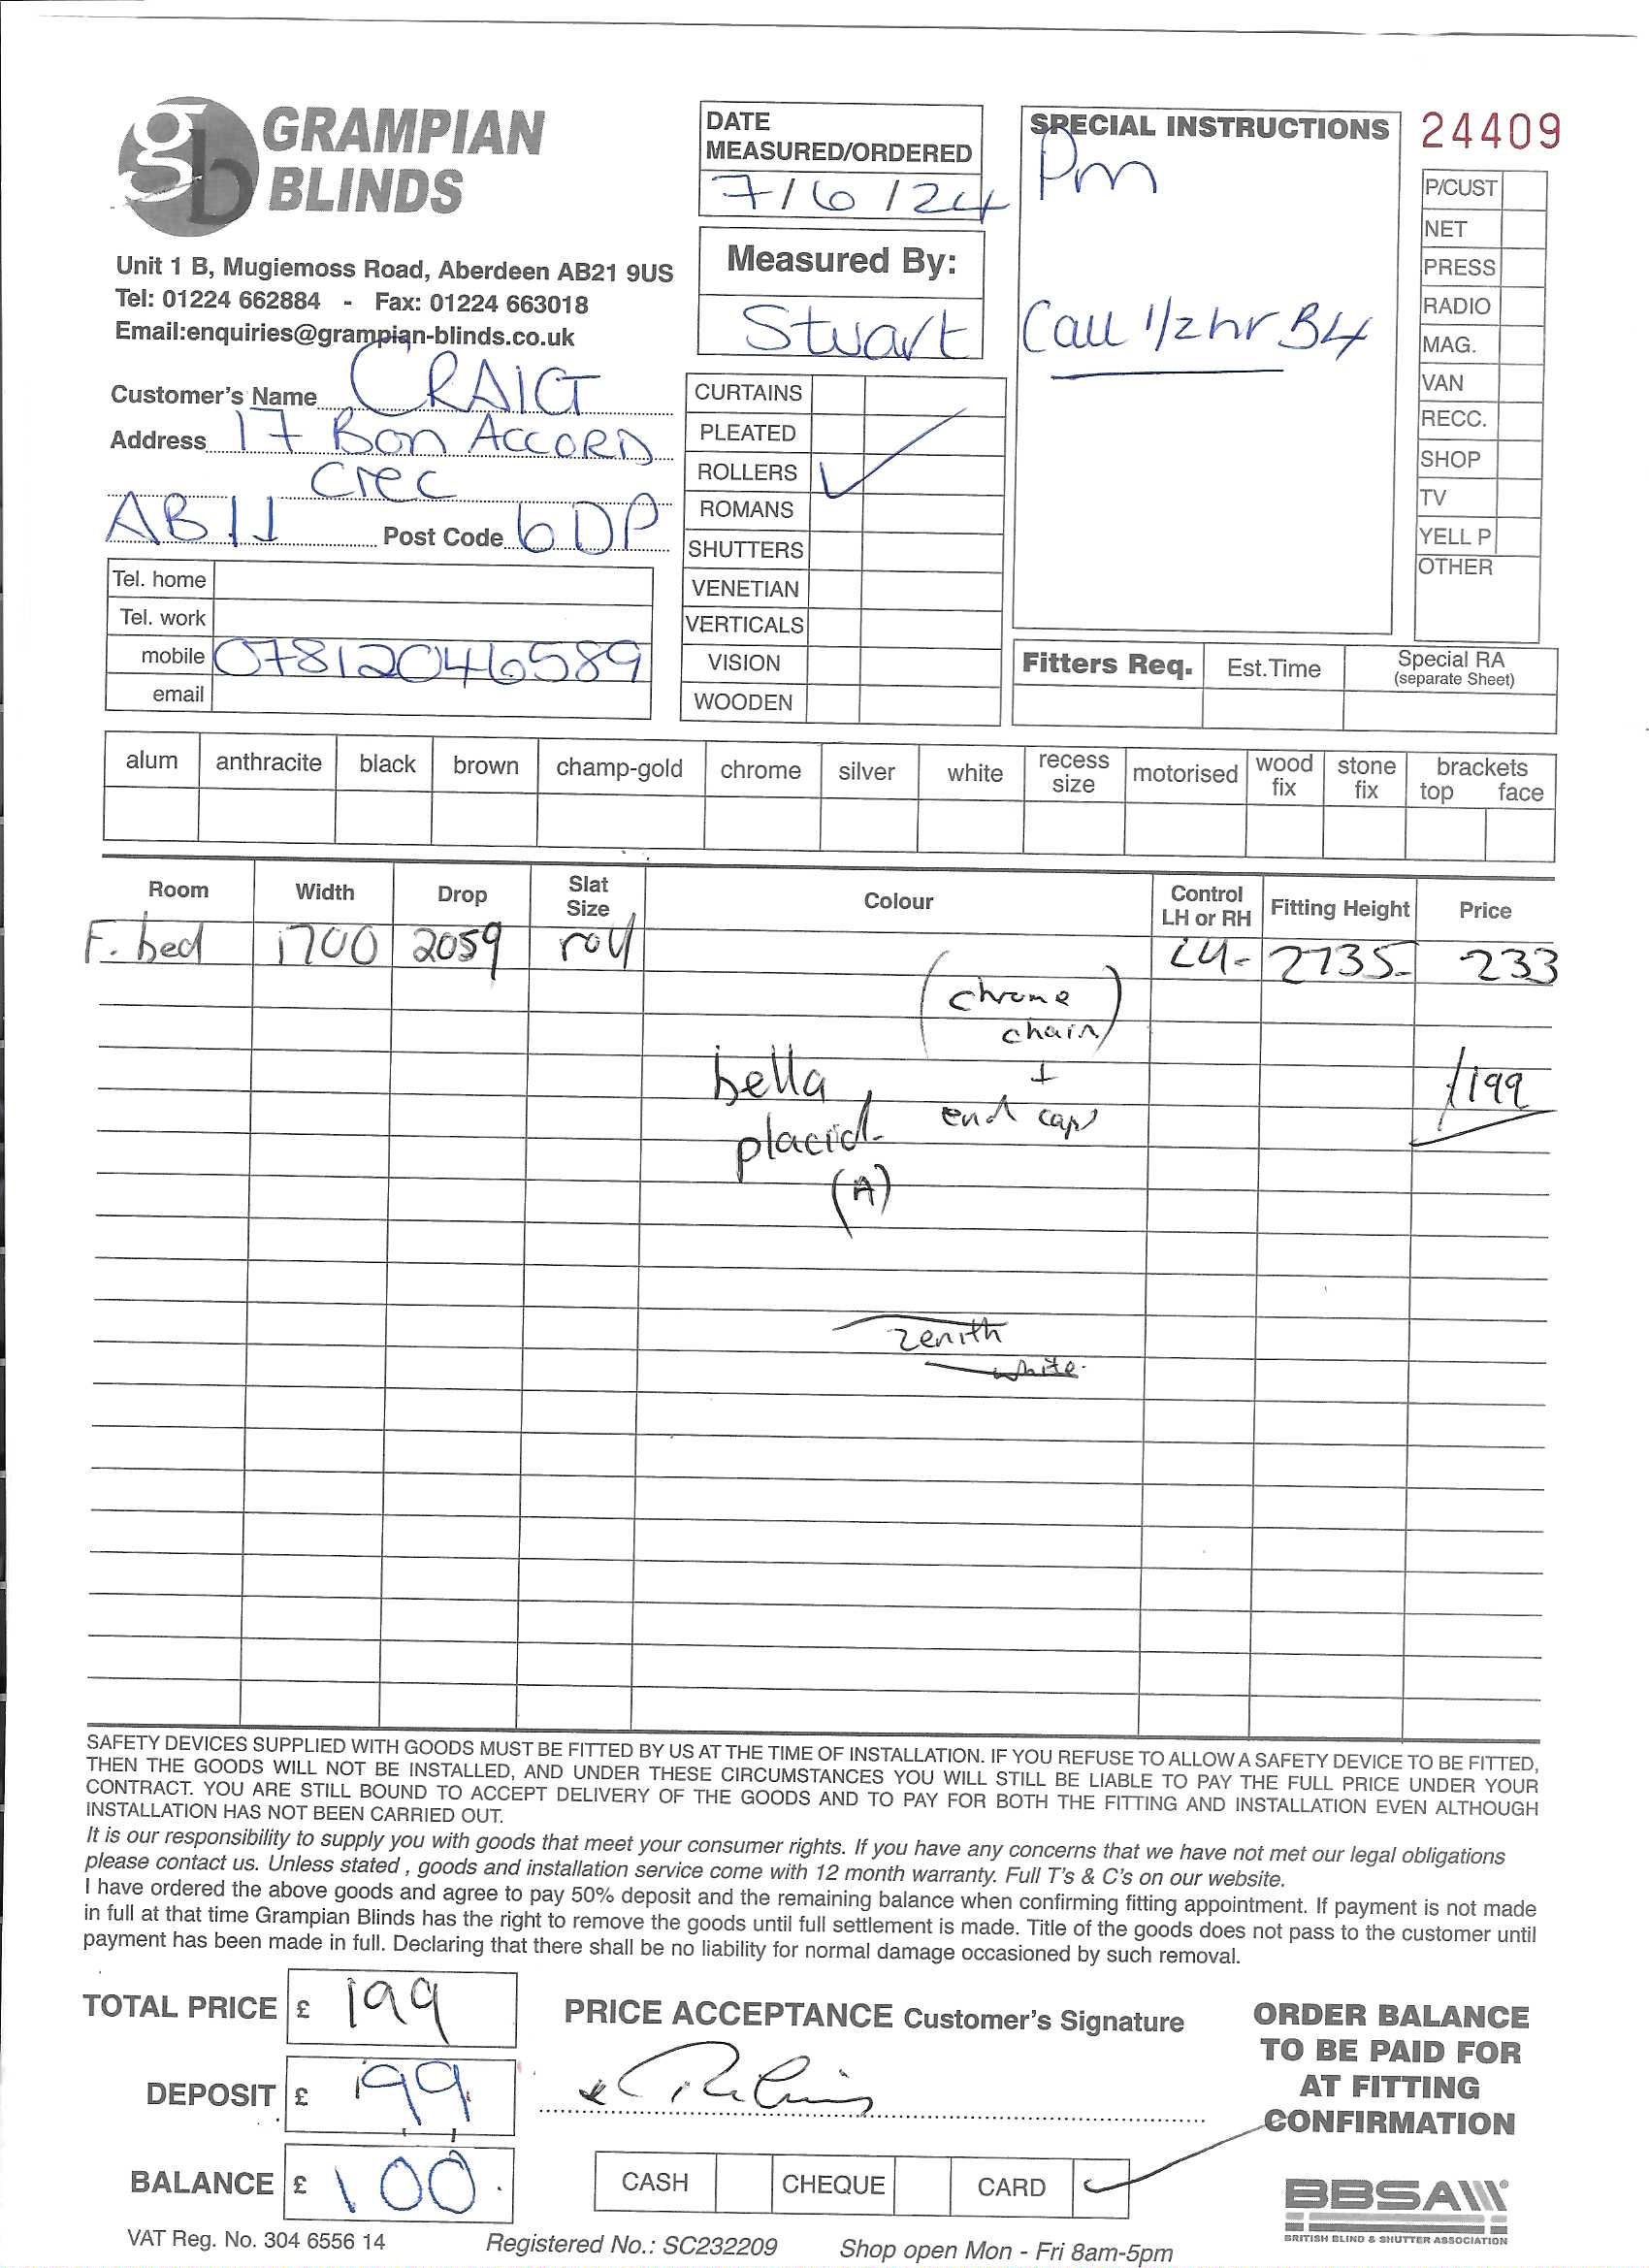 gb GRAMPIAN
BLINDS
Unit 1 B, Mugiemoss Road, Aberdeen AB21 9US
Tel: 01224 662884 - Fax: 01224 663018
Email:enquiries@grampian-blinds.co.uk
Customer's Name CRAIG
Address 17 Bon ACCORD
Crec
AB11 Post Code 6DP
Tel. home
Tel. work
mobile 07812046589
email
DATE
MEASURED/ORDERED
7/6/24
Measured By:
Stuart
CURTAINS
PLEATED
ROLLERS ✓
ROMANS
SHUTTERS
VENETIAN
VERTICALS
VISION
WOODEN
SPECIAL INSTRUCTIONS
Pm
Call 1/2 hr B4
24409
P/CUST
NET
PRESS
RADIO
MAG.
VAN
RECC.
SHOP
TV
YELL P
OTHER
Fitters Req. Est.Time Special RA
(separate Sheet)
alum anthracite black brown champ-gold chrome silver white recess size motorised wood fix stone fix brackets top face
Room Width Drop Slat Size Colour Control LH or RH Fitting Height Price
F. bed 1700 2059 roll LH- 2735- 233
(chrome
chain)
+
end caps
bella
placid-
(A)
/199
zenith
white.
SAFETY DEVICES SUPPLIED WITH GOODS MUST BE FITTED BY US AT THE TIME OF INSTALLATION. IF YOU REFUSE TO ALLOW A SAFETY DEVICE TO BE FITTED,
THEN THE GOODS WILL NOT BE INSTALLED, AND UNDER THESE CIRCUMSTANCES YOU WILL STILL BE LIABLE TO PAY THE FULL PRICE UNDER YOUR
CONTRACT. YOU ARE STILL BOUND TO ACCEPT DELIVERY OF THE GOODS AND TO PAY FOR BOTH THE FITTING AND INSTALLATION EVEN ALTHOUGH
INSTALLATION HAS NOT BEEN CARRIED OUT.
It is our responsibility to supply you with goods that meet your consumer rights. If you have any concerns that we have not met our legal obligations
please contact us. Unless stated , goods and installation service come with 12 month warranty. Full T's & C's on our website.
I have ordered the above goods and agree to pay 50% deposit and the remaining balance when confirming fitting appointment. If payment is not made
in full at that time Grampian Blinds has the right to remove the goods until full settlement is made. Title of the goods does not pass to the customer until
payment has been made in full. Declaring that there shall be no liability for normal damage occasioned by such removal.
TOTAL PRICE £ 199
DEPOSIT £ 99
BALANCE £ 100.
PRICE ACCEPTANCE Customer's Signature
CASH CHEQUE CARD ✓
ORDER BALANCE
TO BE PAID FOR
AT FITTING
CONFIRMATION
BBSA
BRITISH BLIND & SHUTTER ASSOCIATION
VAT Reg. No. 304 6556 14 Registered No.: SC232209 Shop open Mon - Fri 8am-5pm